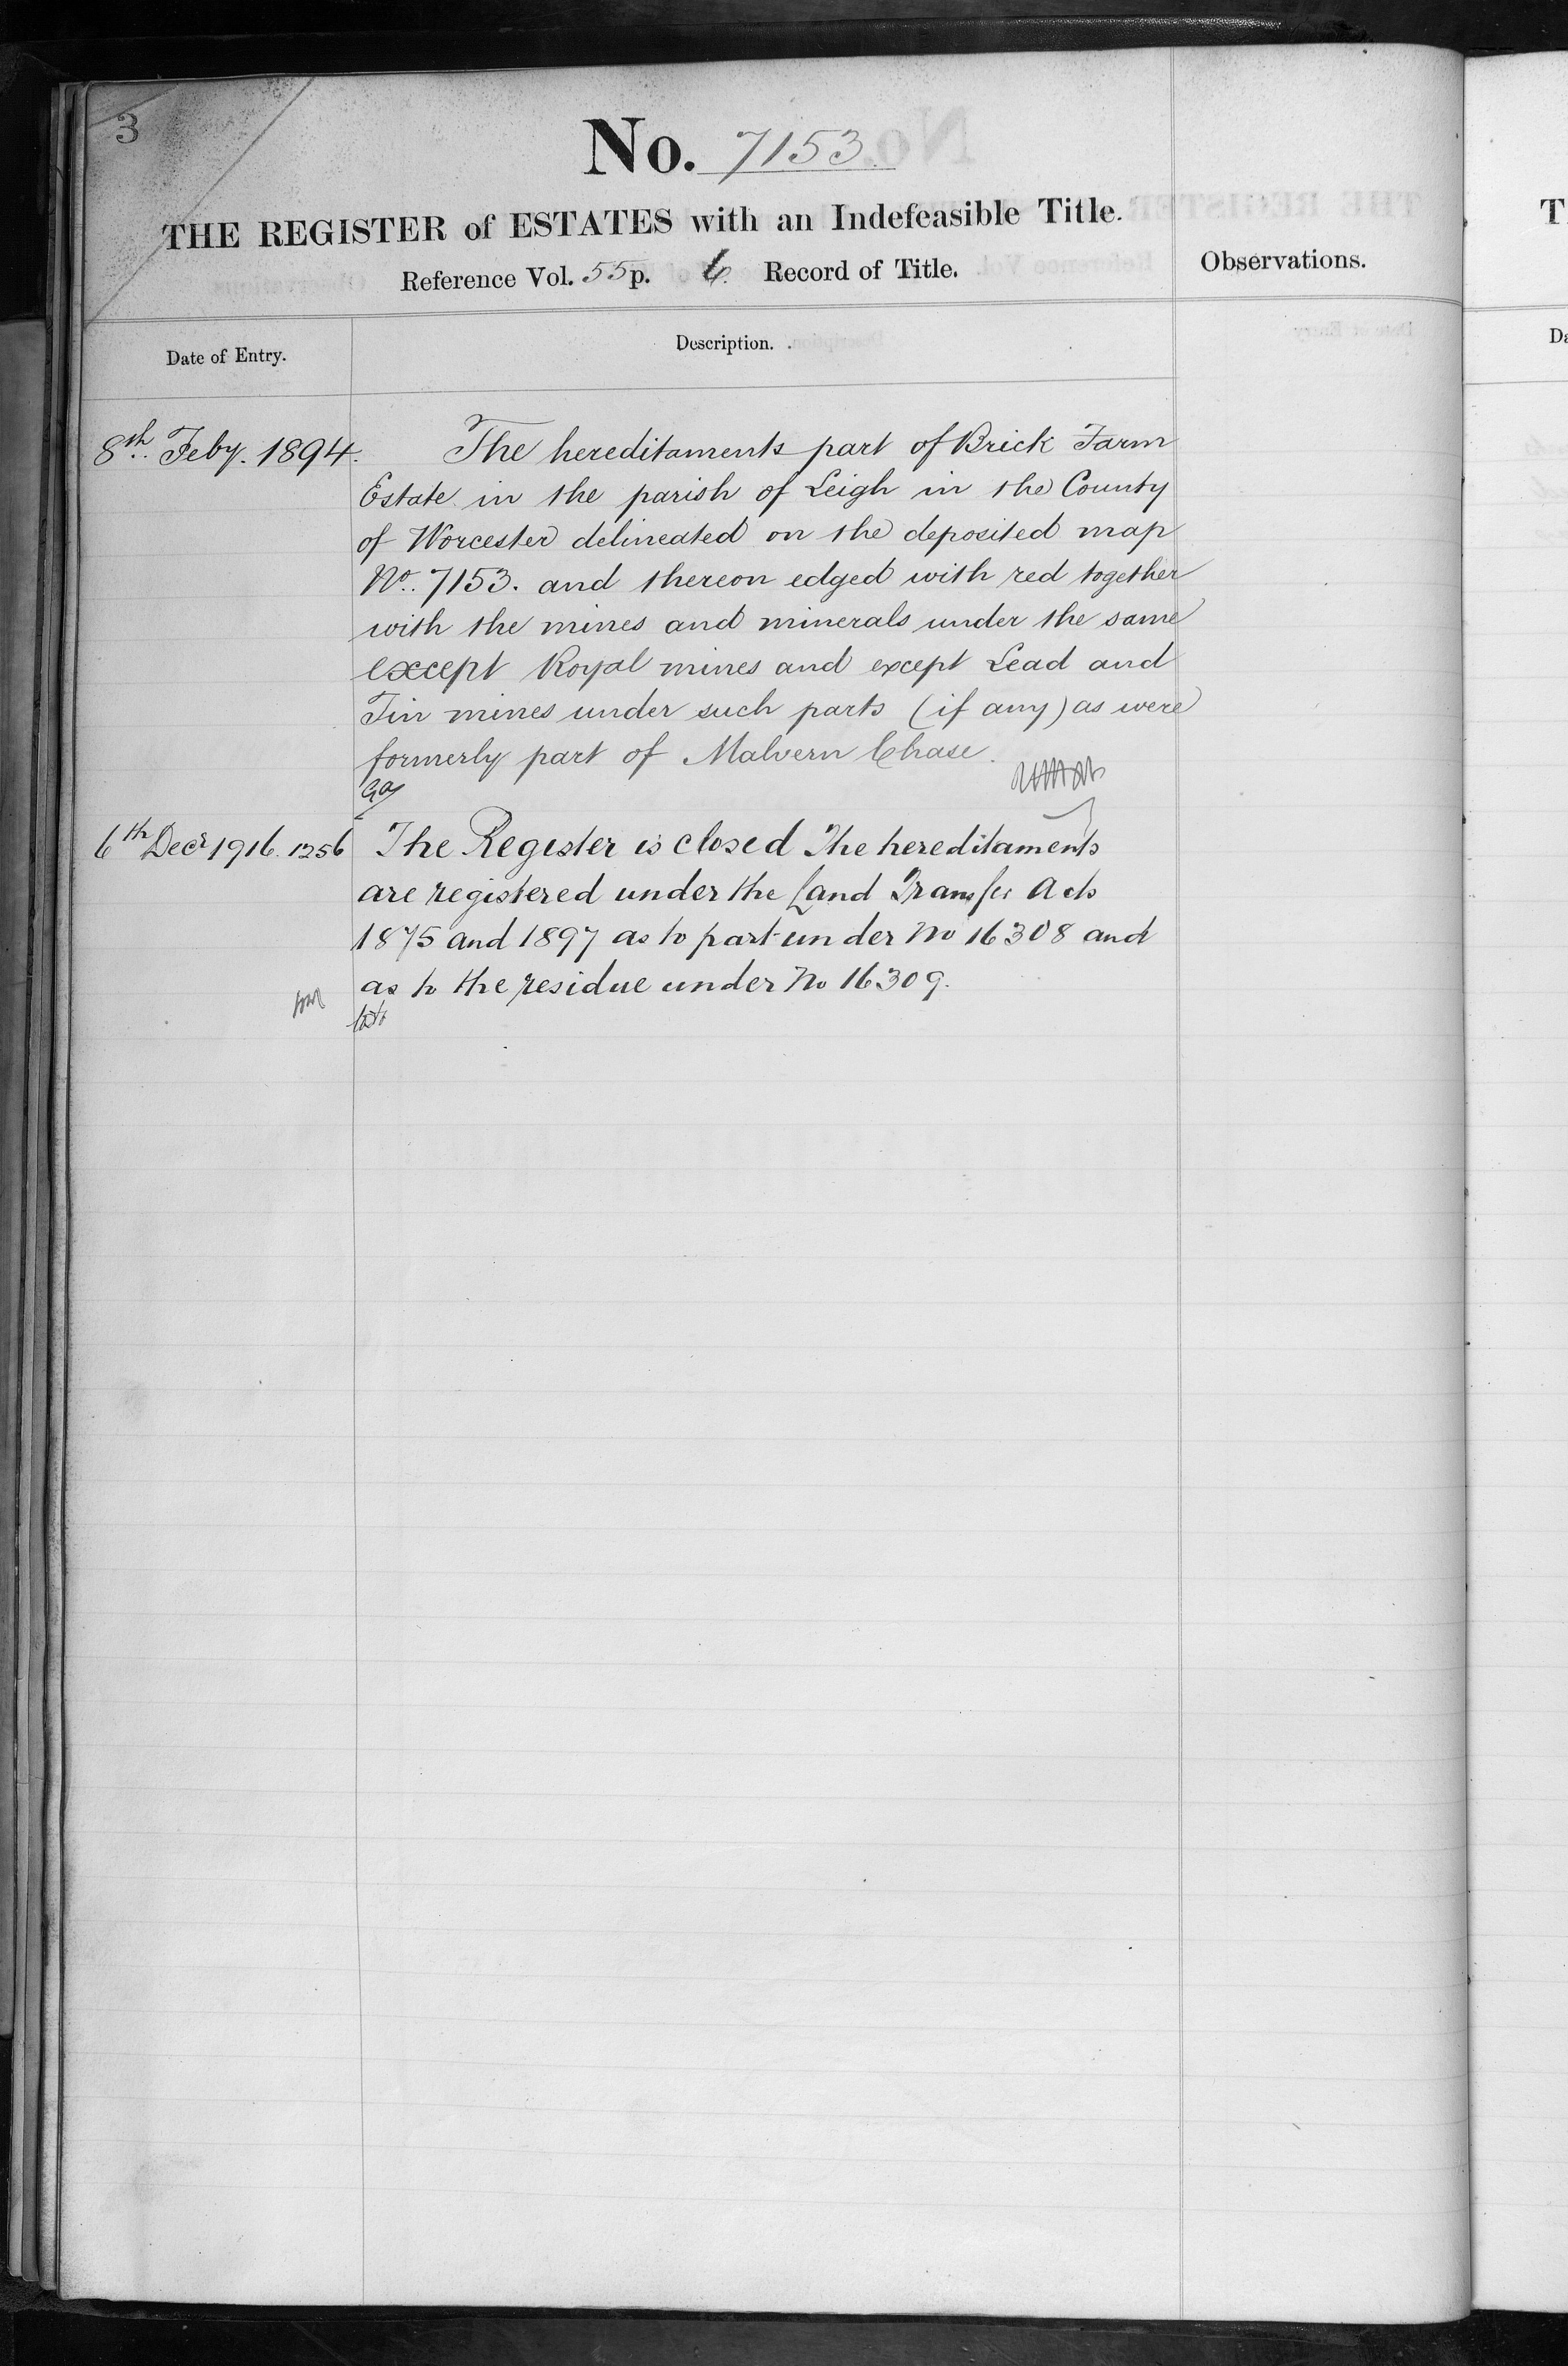 3
No. 7153.
THE REGISTER of ESTATES with an Indefeasible Title.
Reference Vol. 55 p. 6. Record of Title.
Observations.
Date of Entry.
Description.
8th. Feby. 1894.
The hereditaments part of Brick Farm
Estate in the parish of Leigh in the County
of Worcester delineated on the deposited map
No. 7153. and thereon edged with red together
with the mines and minerals under the same
except Royal mines and except Lead and
Tin mines under such parts (if any) as were
formerly part of Malvern Chase.
6th Decr 1916. 1256
The Register is closed The hereditaments
are registered under the Land Transfer Acts
1875 and 1897 as to part under No 16308 and
as to the residue under No 16309.
T
Da